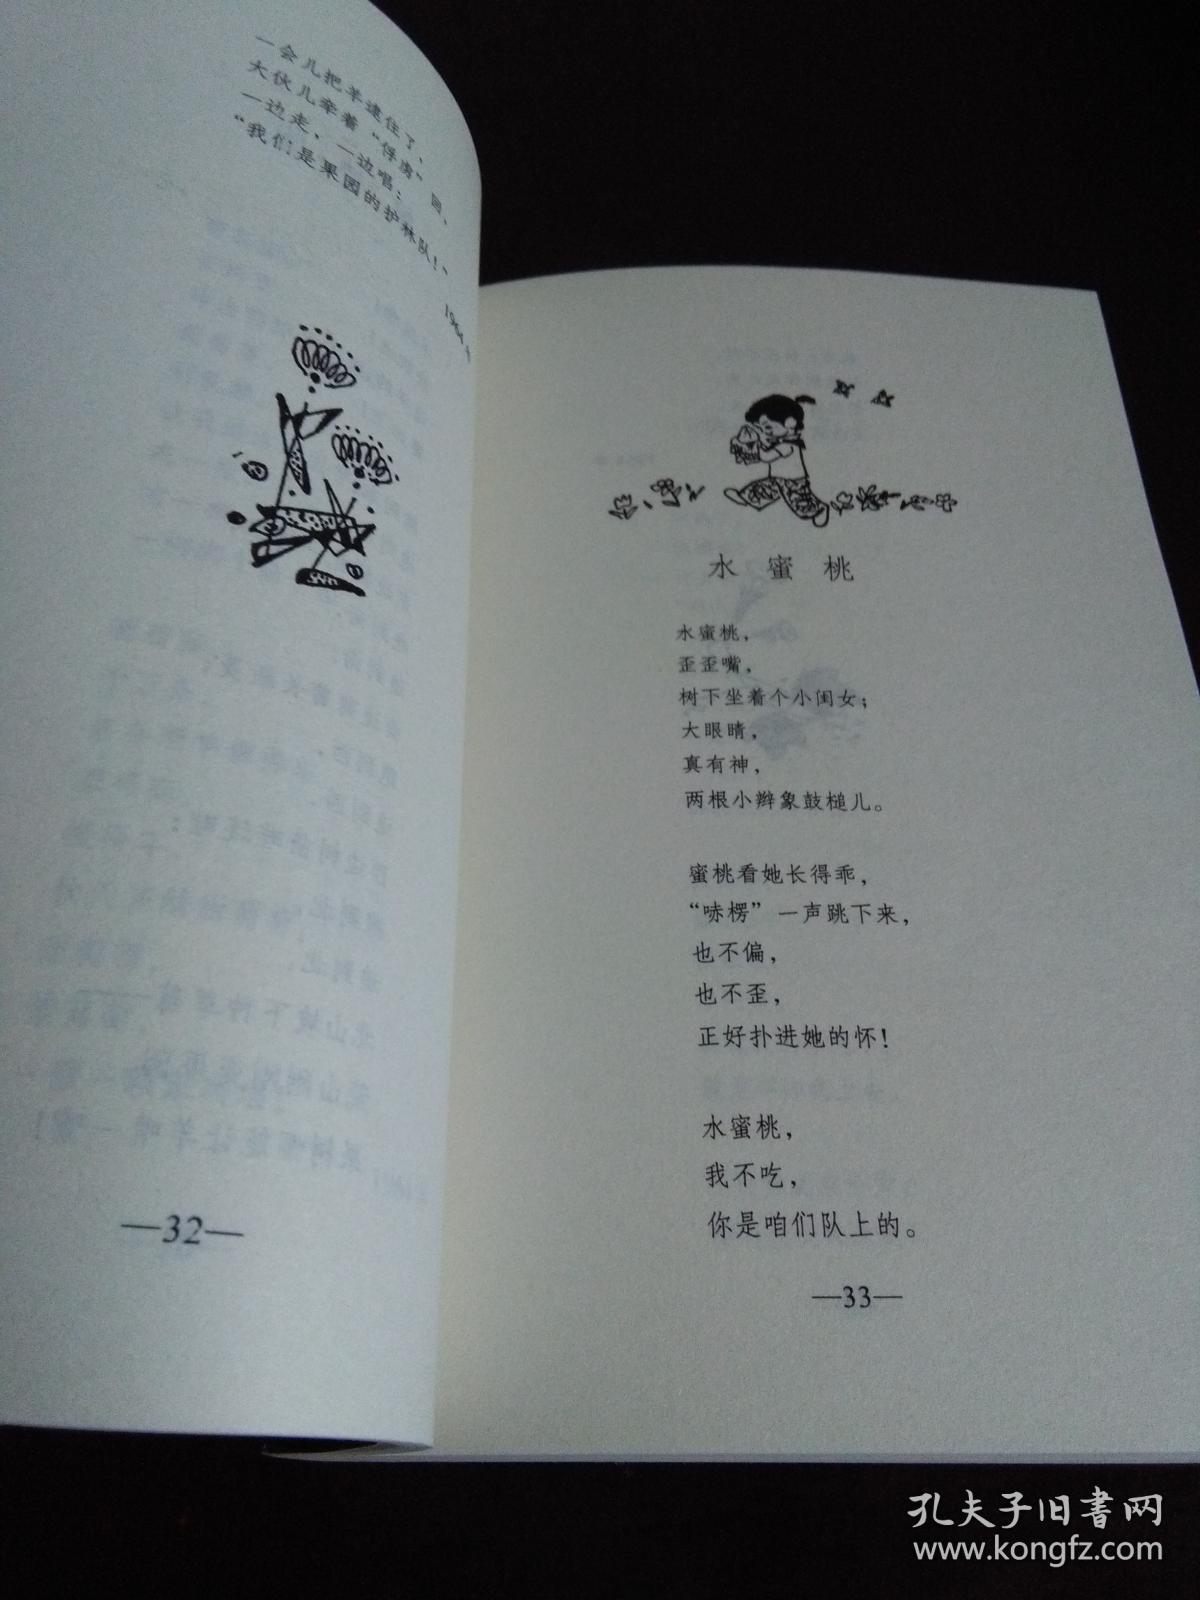 一会儿把羊逮住了、
大伙儿牵着“俘虏”回、
一边走，一边唱：
“我们是果园的护林队！”
1964.
—32—
水蜜桃
水蜜桃，
歪歪嘴，
树下坐着个小闺女；
大眼睛，
真有神，
两根小辫象鼓槌儿。
蜜桃看她长得乖，
“哧楞”一声跳下来，
也不偏，
也不歪，
正好扑进她的怀！
水蜜桃，
我不吃，
你是咱们队上的。
—33—
孔夫子旧书网
www.kongfz.com